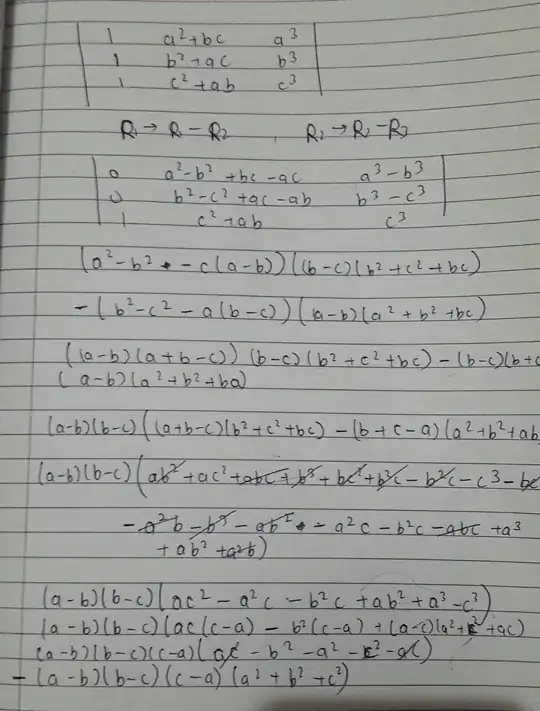 | 1 a²+bc a³ |
| 1 b²+ac b³ |
| 1 c²+ab c³ |
R₁→ R₁ – R₂ , R₂→ R₂–R₃
| 0 a²–b²+bc–ac a³–b³ |
| 0 b²–c²+ac–ab b³–c³ |
| 1 c²+ab c³ |
(a²–b² –c(a–b))((b–c)(b²+c²+bc)
–(b²–c²–a(b–c))(a–b)(a²+b²+bc)
((a–b)(a+b–c))(b–c)(b²+c²+bc)–(b–c)(b+c
(a–b)(a²+b²+ba)
(a–b)(b–c)((a+b–c)(b²+c²+bc)–(b+c–a)(a²+b²+ab
(a–b)(b–c)(ab²+ac²+abc+b³+bc²+b²c–b²c–c³–bc
–a²b–b³–ab² –a²c–b²c–abc+a³
+ab²+a²b)
(a–b)(b–c)(ac²–a²c–b²c+ab²+a³–c³)
(a–b)(b–c)(ac(c–a)–b²(c–a)+(a–c)(a²+c²+ac)
(a–b)(b–c)(c–a)(ac–b²–a²–c²–ac)
–(a–b)(b–c)(c–a)(a²+b²+c²)